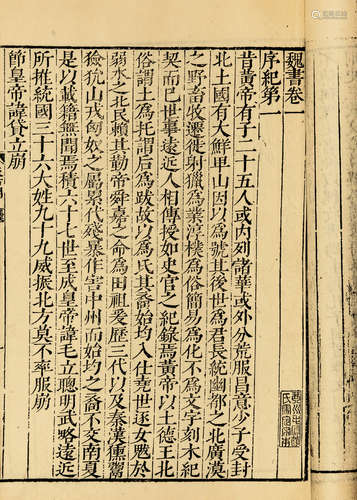 魏書卷一
序紀第一
昔黃帝有子二十五人或内列諸華或外分荒服昌意少子受封
北土國有大鮮卑山因以為號其後世為君長統幽都之北廣漠
之野畜牧遷徙射獵為業淳樸為俗簡易為化不為文字刻木紀
契而已世事遠近人相傳授如史官之紀錄焉黃帝以土德王北
俗謂土為托謂后為跋故以為氏其裔始均入仕堯世逐女魃於
弱水之北民賴其勤帝舜嘉之命為田祖爰歷三代以及秦漢獯鬻
獫狁山戎匈奴之屬累代殘暴作害中州而始均之裔不交南夏
是以載籍無聞焉積六十七世至成皇帝諱毛立聰明武略遠近
所推統國三十六大姓九十九威振北方莫不率服崩
節皇帝諱貸立崩